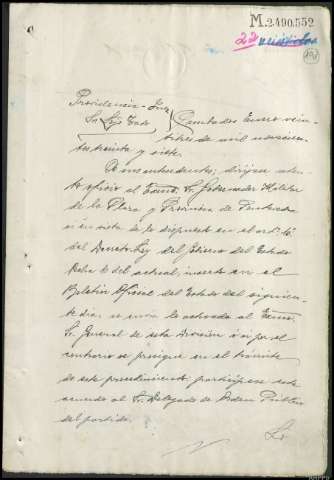 M.2490.552
22
Providencia Juez
Sr. Cambados Enero vein-
titres de mil novecien-
tos treinta y siete.
dirijase aten-
to oficio al Excmo. Sr. Gobernador Militar
de la Plaza y Provincia de Pontevedra
en vista de lo dispuesto en el art.
del Decreto-Ley del Gobierno del Estado
fecha del actual, inserto en el
Boletin Oficial del Estado del siguien-
te dia, se envia lo actuado al Excmo.
Sr. General de esta Division o si por el
contrario se prosigue en el trámite
de este procedimiento; participese este
acuerdo al Sr. Delegado de Orden Publico
del partido.